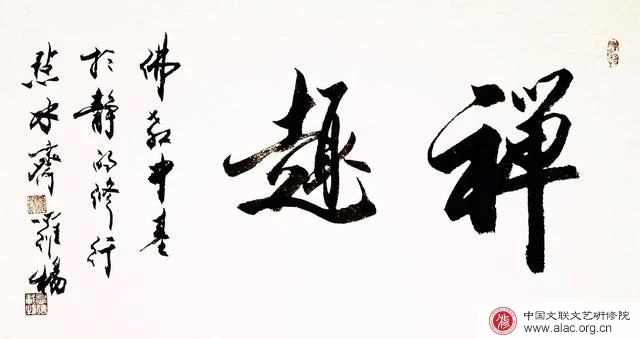 禅趣
佛教中基
於静的修行
点水齋 羅楊
中国文联文艺研修院
www.alac.org.cn